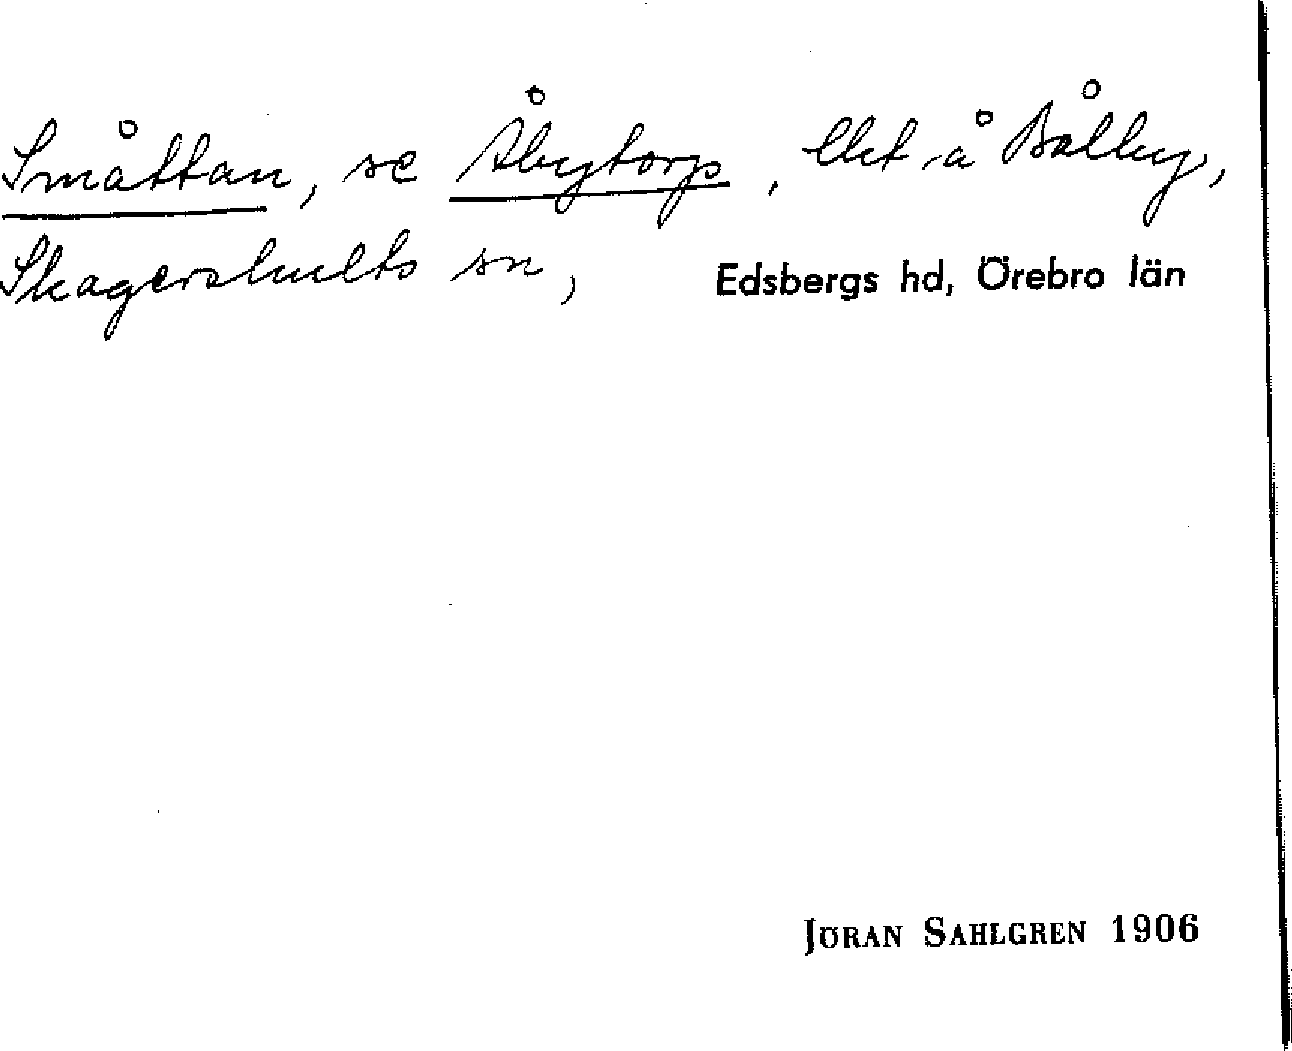 Småttan, se Åbytorp, lht å Bålby,
Skagershults sn, Edsbergs hd, Örebro län
JÖRAN SAHLGREN 1906